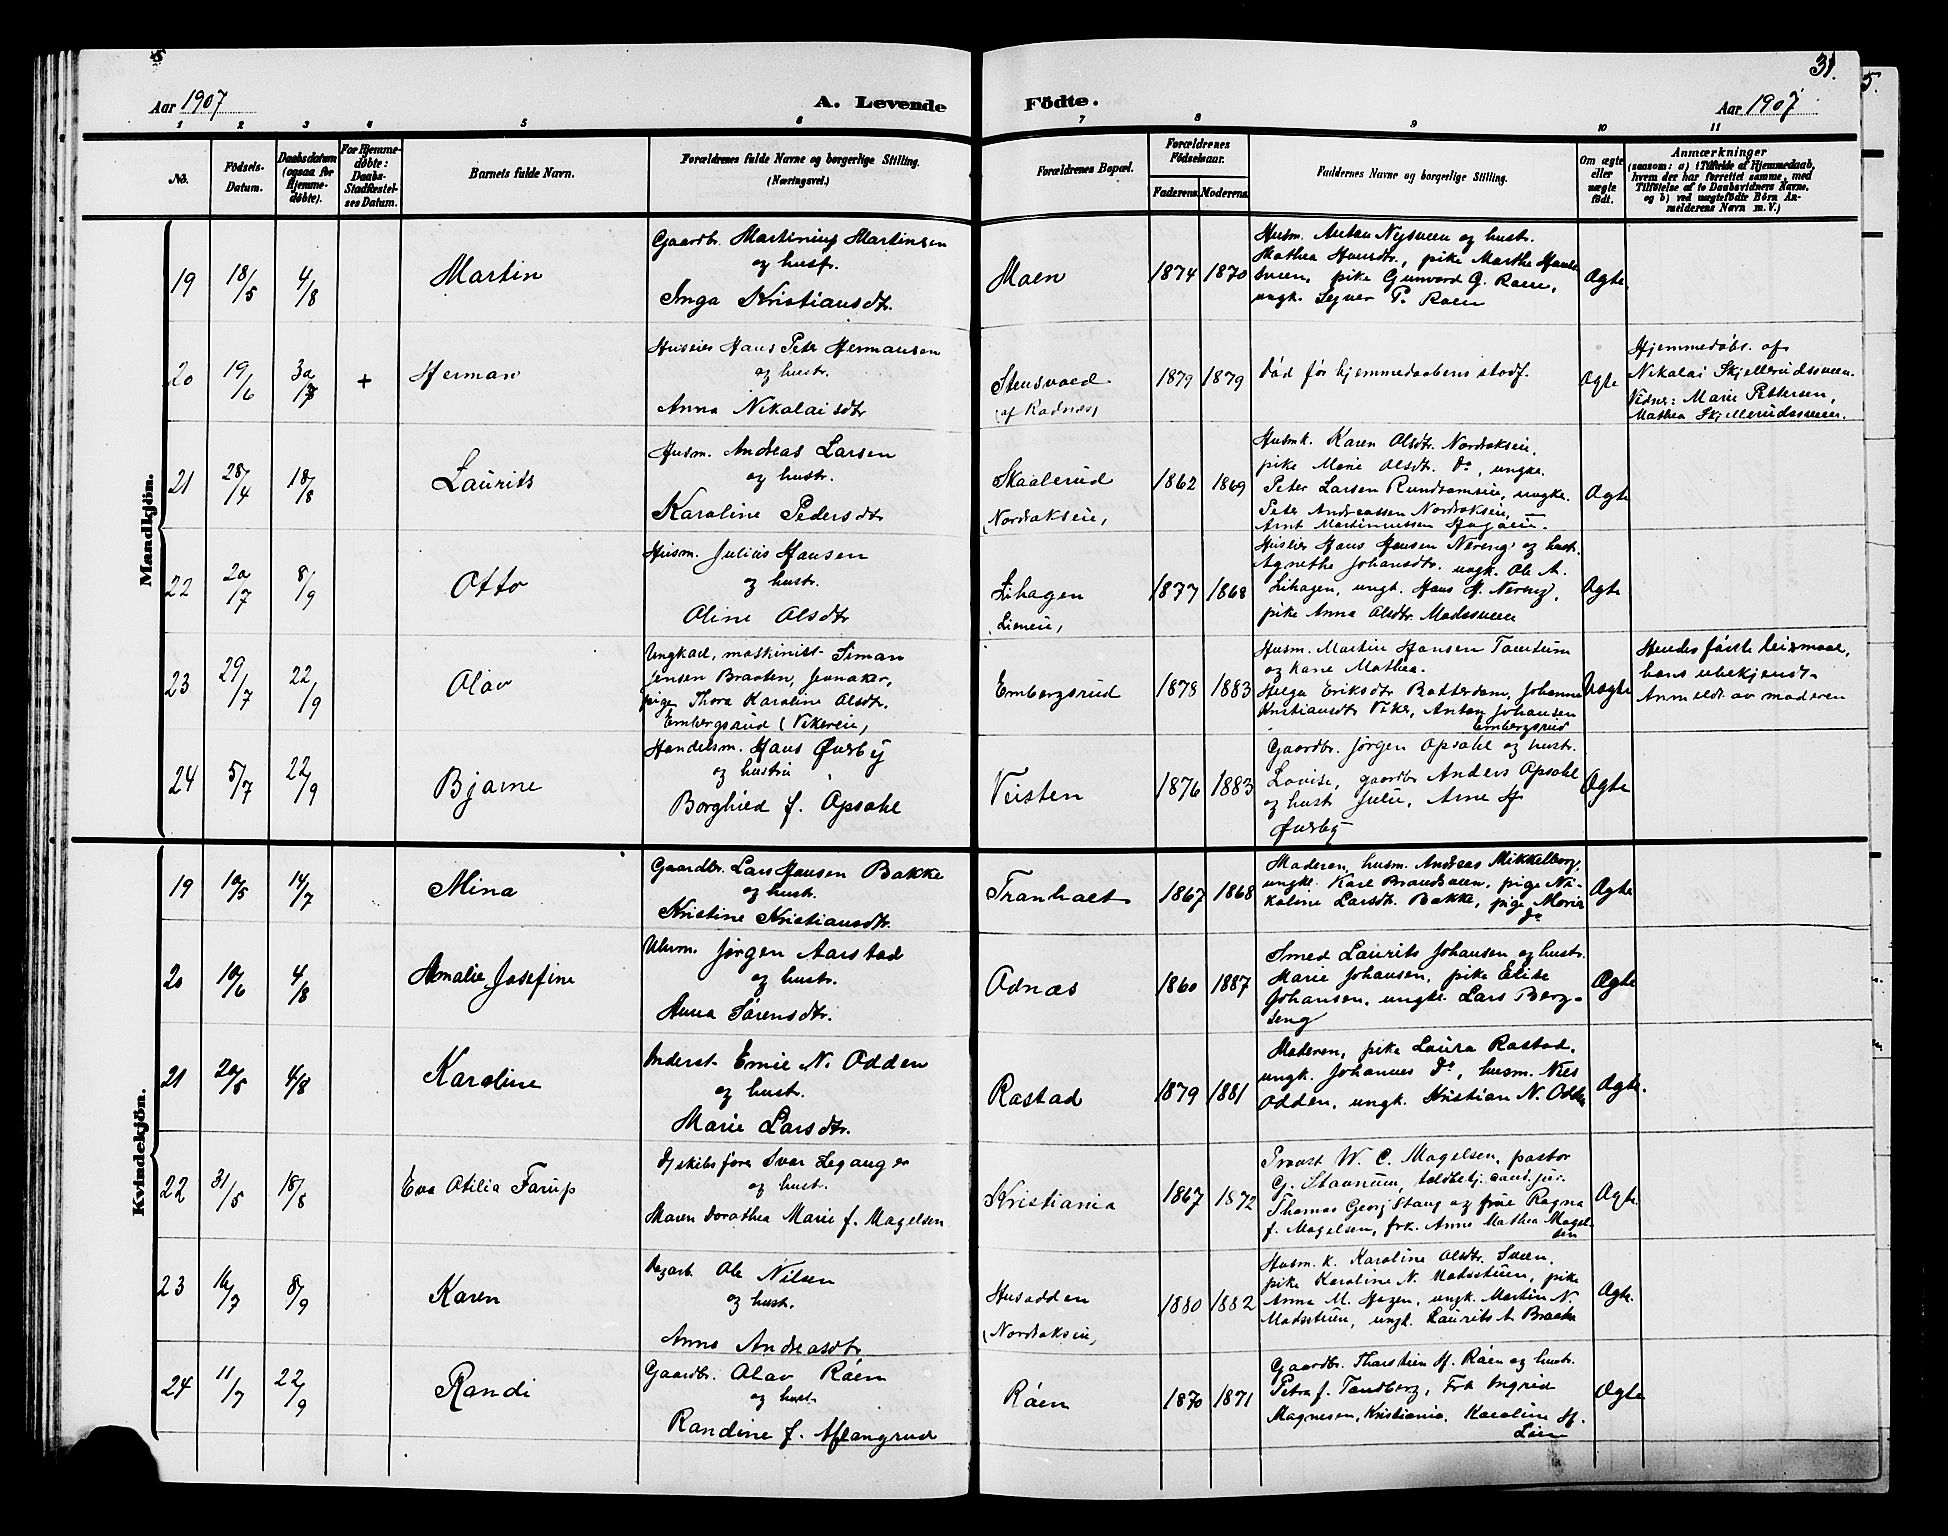 5
31.
5.
Aar 1907
A. Levende
Födte.
Aar 1907
1 2 3 4 5 6 7 8 9 10 11
No.
Födsels-
Datum.
Daabsdatum
(ogsaa for
Hjemme-
döbte).
For Hjemme-
döbte:
Daabs-
Stadfæstel-
ses Datum.
Barnets fulde Navn.
Forældrenes fulde Navne og borgerlige Stilling.
(Næringsvei.)
Forældrenes Bopæl.
Forældrenes
Födselsaar.
Faderens. Moderens.
Faddernes Navne og borgerlige Stilling.
Om ægte
eller
uægte
födt.
Anmærkninger
(saasom: a) i Tilfælde af Hjemmedaab,
hvem der har forrettet samme, med
Tilföielse af to Daabsvidners Navne.
og b) ved uægtefödte Börn An-
melderens Navn m. V.)
Mandkjön.
19 18/5 4/8 Martin
Gaardbr. Martinius Martinsen
og hustr.
Inga Kristiansdtr.
Moen 1874 1870
Husm. Anton Nysveen og hustr.
Mathea Hansdtr., pike Marthe
sveen, pike Gunvord G. Roen,
ungk. P. Roen
Ægte
20 19/6 + Herman
Huseier Hans Peter Hermansen
og hustr.
Anna Nikolaisdtr
1879 1879
død før hjemmedaabens stadf.
Ægte
Hjemmedøbt af
Nikolai Skjellerudsveen.
Vidner: Marie Pettersen,
Mathea Skjellerudsveen.
21 28/4 18/8 Laurits
Husm. Andreas Larsen
og hustr.
Karoline Pedersdtr
Skaalerud
(Nordakseie)
1862 1869
Husmk. Karen Olsdtr. Nordakseie,
pike Marie Olsdtr. do, ungk.
Peter Larsen ungk.
Peter Andreassen Nordakseie,
Arnt Martinussen
Ægte
22 20/7 8/9 Otto
Husm. Julius Hansen
og hustr.
Oline Olsdtr
Lihagen
(Lieneie)
1877 1868
Huseier Hans Hansen Nereng og hustr.
Agnethe Johansdtr. ungk. Ole A.
Lihagen, ungk. Hans H. Nereng,
pike Anna Olsdtr. Madssveen
Ægte
23 29/7 22/9 Olav
Ungkarl, maskinist Simon
Jensen Braaten, Jevnaker,
pige Thora Karoline Olsdtr.
Embergsrud (Vikereie)
Embergsrud 1878 1883
Husm. Martin Hansen Tomtum
og kone Mathea.
Helga Eriksdtr Rotterdam, Johanne
Kristiansdtr Vike, Anton Johansen
Embergsrud
Uægte
Hendes første leiermaal,
hans ubekjendt.
Anmeldt av moderen
24 5/7 22/9 Bjarne
Handelsm. Hans Øverby
og hustru
Borghild f. Opsahl
Veisten 1876 1883
Gaardbr. Jørgen Opsahl og hustr.
Lovise, gaardbr Anders Opsahl
og hustr Julie, Arne H
Øverby
Ægte
Kvindekjön.
19 10/5 14/7 Mina
Gaardbr. Lars Hansen Bakke
og hustr.
Kristine Kristiansdtr.
Tranholt 1867 1868
Moderen, husm. Andreas Mikkelberg,
ungk. Karl Brandsveen, pige Ni-
koline Larsdtr. Bakke, pige Marie
do
Ægte
20 10/6 4/8 Amalie Josefine
Uhrm. Jørgen Aarstad
og hustr.
Anna Sørensdtr.
Odnæs 1860 1887
Smed Laurits Johansen og hustr.
Marie Johansen, pike Elise
Johansen, ungk. Lars Berg-
seng
Ægte
21 20/5 4/8 Karoline
Inderst Emil N. Odden
og hustr.
Marie Larsdtr.
Rostad 1879 1881
Moderen, pike Laura Rostad,
ungk. Johannes do, husm. Nils
Odden, ungk. Kristian N. Odden
Ægte.
22 31/5 18/8 Eva Otilia Farup
Dskibsfører Ivar Leganger
og hustr.
Maren Dorothea Marie f. Magelsen
Kristiania 1867 1872
Provst W. C. Magelsen, pastor
G. Stavnum, toldbetj. cand. jur.
Thomas Georg Stang og frue Ragna
f. Magelsen, frk. Anne Mathea Magel-
sen
Ægte
23 16/7 8/9 Karen
Dagarb. Ole Nilsen
og hustr.
Anne Andreasdtr
Husodden
(Nordakseie)
1880 1882
Husm. k. Karoline Olsdtr. Sveen,
pike Karoline N. Madsstuen, pike
Anna M. Hagen, ungk. Martin N.
Madsstuen, ungk. Laurits A Braaten
Ægte.
24 11/7 22/9 Randi
Gaardbr. Olav Röen
og hustr.
Randine f. Aslangrud
Röen 1870 1871
Gaardbr. Thorstein H. Röen og hustr.
Petra f. Tandberg, Frk Ingrid
Magnesen, Kristiania, Karoline H.
Lien
Ægte